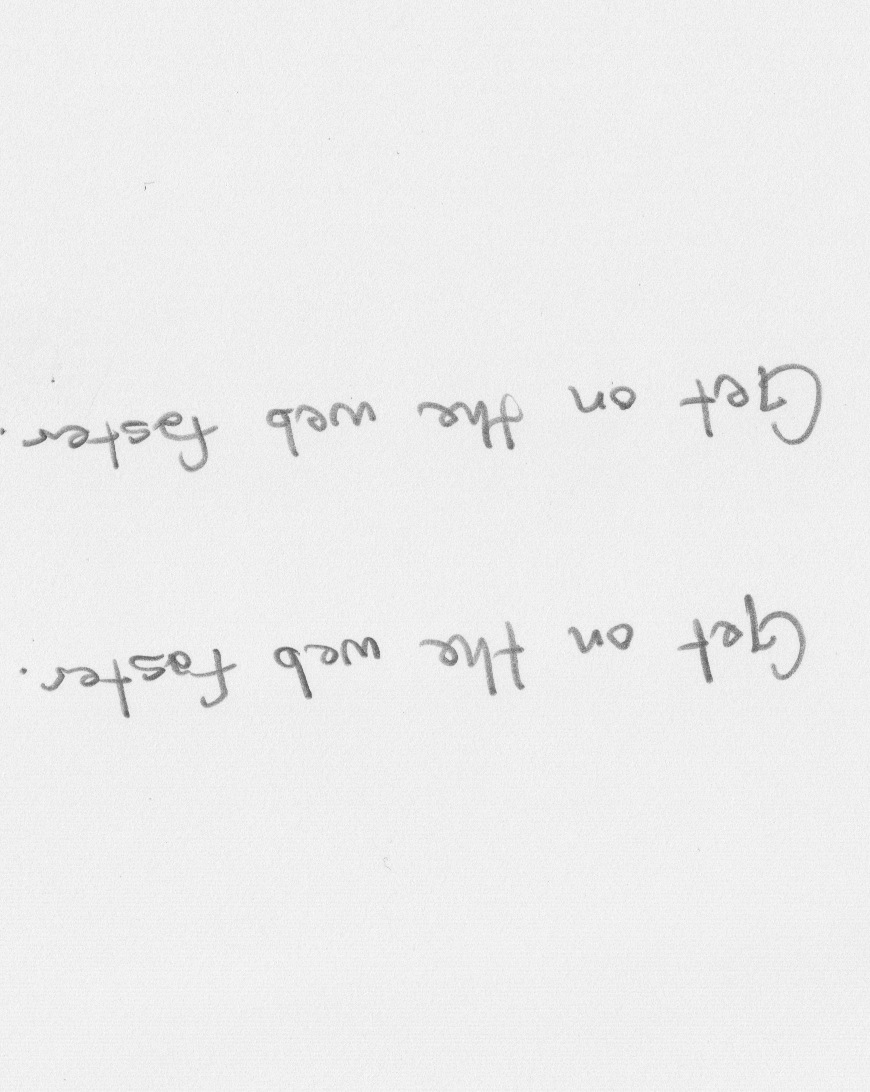 Get on the web faster.
Get on the web faster.